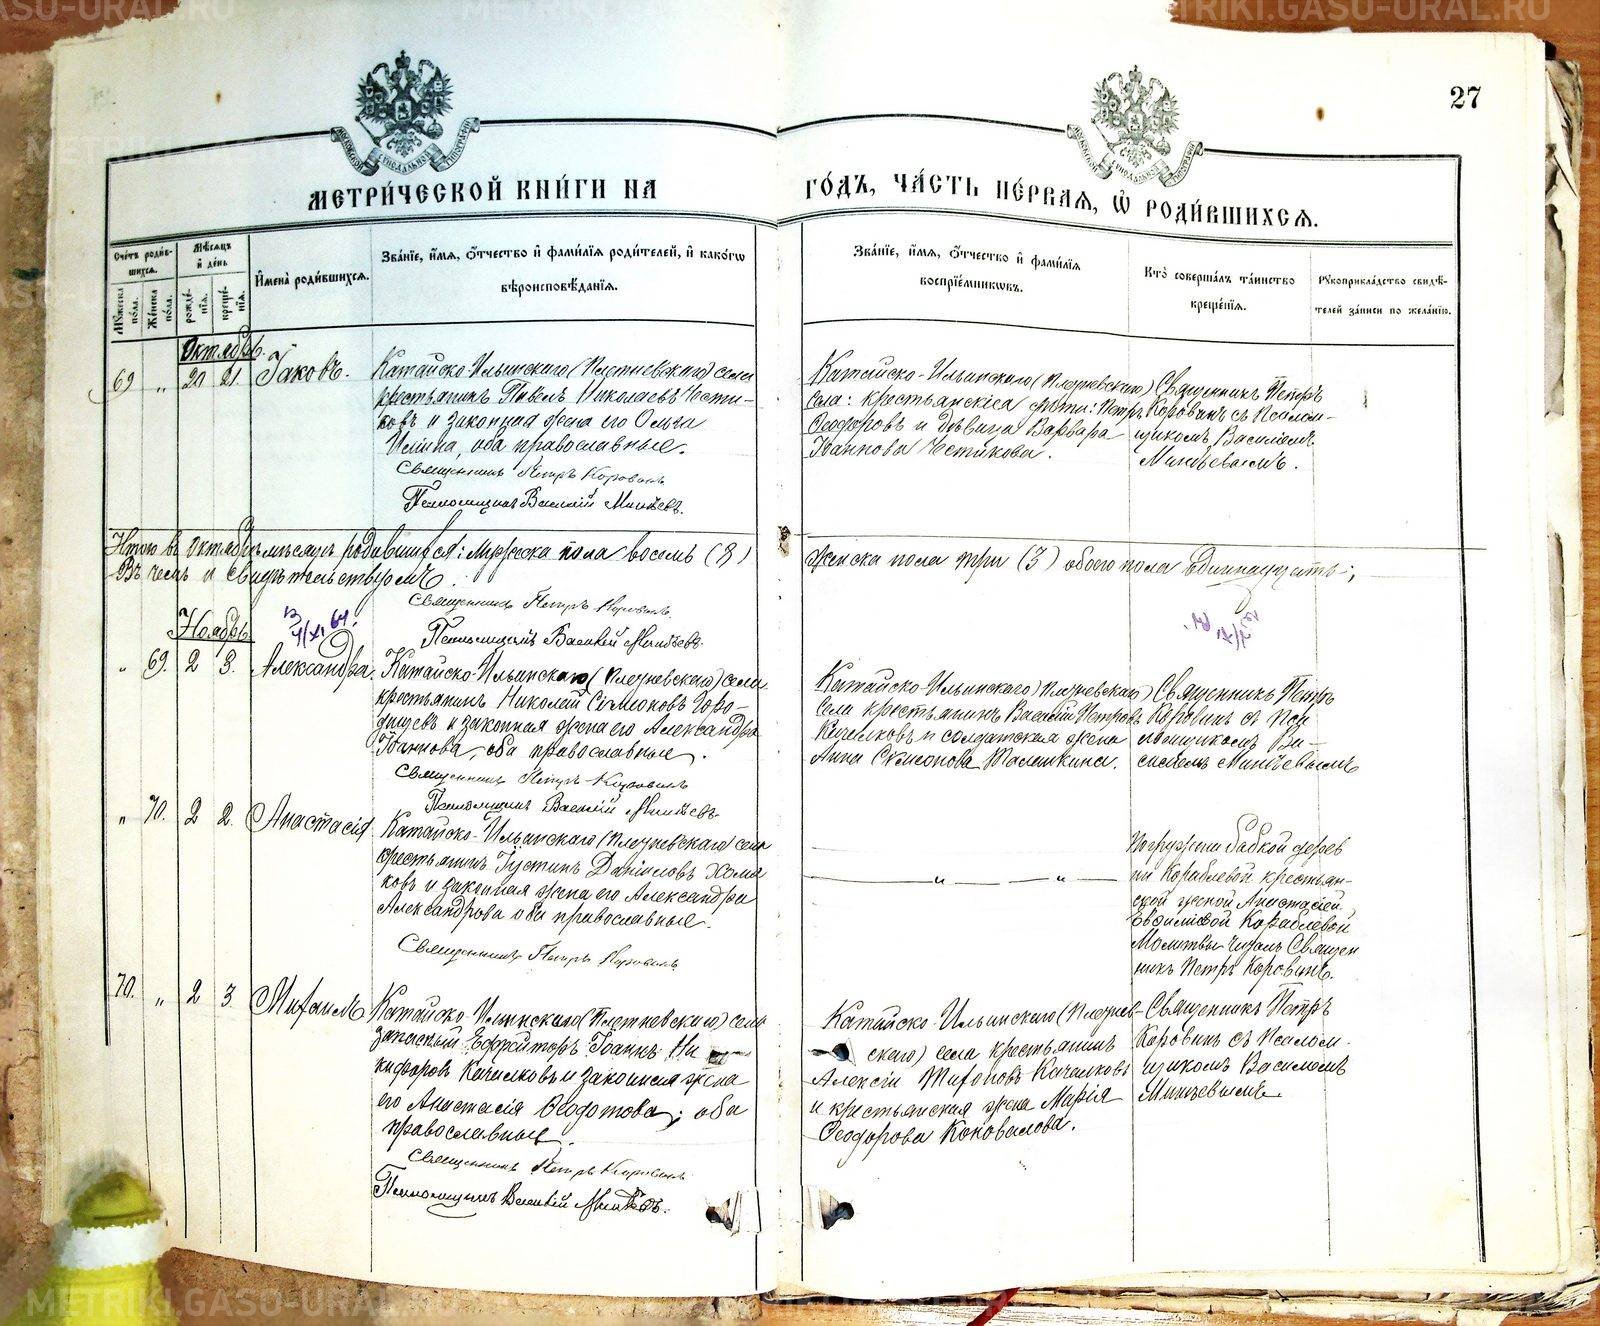 METRIKI.GASU-URAL.RU
27
МОСКОВСКОЙ СѴНОДАЛЬНОЙ ТИПОГРАФІИ
МОСКОВСКОЙ СѴНОДАЛЬНОЙ ТИПОГРАФІИ
МЕТРИ́ЧЕСКОЙ КНИ́ГИ НА ГО́ДЪ, ЧА́СТЬ ПЕ́РВАЯ, Ѽ РОДИ́ВШИХСЯ.
Сче́тъ роди́в-
шихся.
Му́жеска по́ла.
Же́нска по́ла.
Мѣ́сяцъ
и҆ де́нь
рожде́-
нїѧ.
креще́-
нїѧ.
И҆мена̀ роди́вшихсѧ.
Зва́нїе, и҆́мѧ, ѻ҆́тчество и҆ фами́лїѧ роди́телей, и҆ како́гѡ
вѣроисповѣ́данїѧ.
Зва́нїе, и҆́мѧ, ѻ҆́тчество и҆ фами́лїѧ
воспрїе́мникѡвъ.
Кто̀ соверша́лъ та́инство
креще́нїѧ.
Рꙋкоприкла́дство свидѣ́-
телей за́писи по жела́нїю.
Октябрь.
69 „ 20 21. Іаковъ.
Катайско-Ильинскаго (Плетневскаго) села
крестьянинъ Павелъ Николаевъ Чести-
ковъ и законная жена его Ольга
Илина, оба православные.
Священникъ Петръ Коровинъ
Псаломщикъ Василій Минѣевъ.
Катайско-Ильинскаго (Плетневскаго)
села: крестьянскіе дѣти: Петръ
Ѳеодоровъ и дѣвица Варвара
Іоаннова Честикова.
Священникъ Петръ
Коровинъ съ Псалом-
щикомъ Василіемъ
Минѣевымъ.
Итого въ октябрѣ мѣсяцѣ родившихся: мужеска пола восемь (8) женска пола три (3) обоего пола одиннадцать;
Въ чемъ и свидѣтельствуемъ.
Священникъ Петръ Коровинъ.
Псаломщикъ Василій Минѣевъ.
Ноябрь
„ 69. 2 3. Александра.
Катайско-Ильинскаго (Плетневскаго) села
крестьянинъ Николай Сѵмеоновъ Горо-
дищевъ и законная жена его Александра
Іоаннова, оба православные.
Священникъ Петръ Коровинъ
Псаломщикъ Василій Минѣевъ
Катайско-Ильинскаго (Плетневскаго)
села крестьянинъ Василій Петровъ
Качалковъ и солдатская жена
Анна Сѵмеонова Талашкина.
Священникъ Петръ
Коровинъ съ Пса
ломщикомъ Ва-
силіемъ Минѣевымъ
„ 70. 2 2. Анастасія
Катайско-Ильинскаго (Плетневскаго) села
крестьянинъ Іустинъ Даніиловъ Холм
ковъ и законная жена его Александра
Александрова оба православные.
Священникъ Петръ Коровинъ
„ „
Погружена бабкой дерев
ни Кораблевой крестьян-
ской женой Анастасіей
Евѳиміевой Кораблевой
Молитвы читалъ Священ
никъ Петръ Коровинъ.
70. „ 2 3 Михаилъ
Катайско-Ильинскаго (Плетневскаго) села
запасный Ефрейторъ Іоаннъ Ни
кифоровъ Качалковъ и законная жена
его Анастасія Ѳеодотова; оба
православные.
Священникъ Петръ Коровинъ
Псаломщикъ Василій Минѣевъ.
Катайско-Ильинскаго (Плетнев-
скаго) села крестьянинъ
Алексій Тихоновъ Качалковъ
и крестьянская жена Марія
Ѳеодорова Коновалова.
Священникъ Петръ
Коровинъ съ Псалом
щикомъ Василіемъ
Минѣевымъ
METRIKI.GASU-URAL.RU